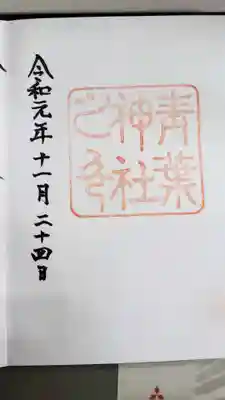 青葉
神社
令和元年十一月二十四日